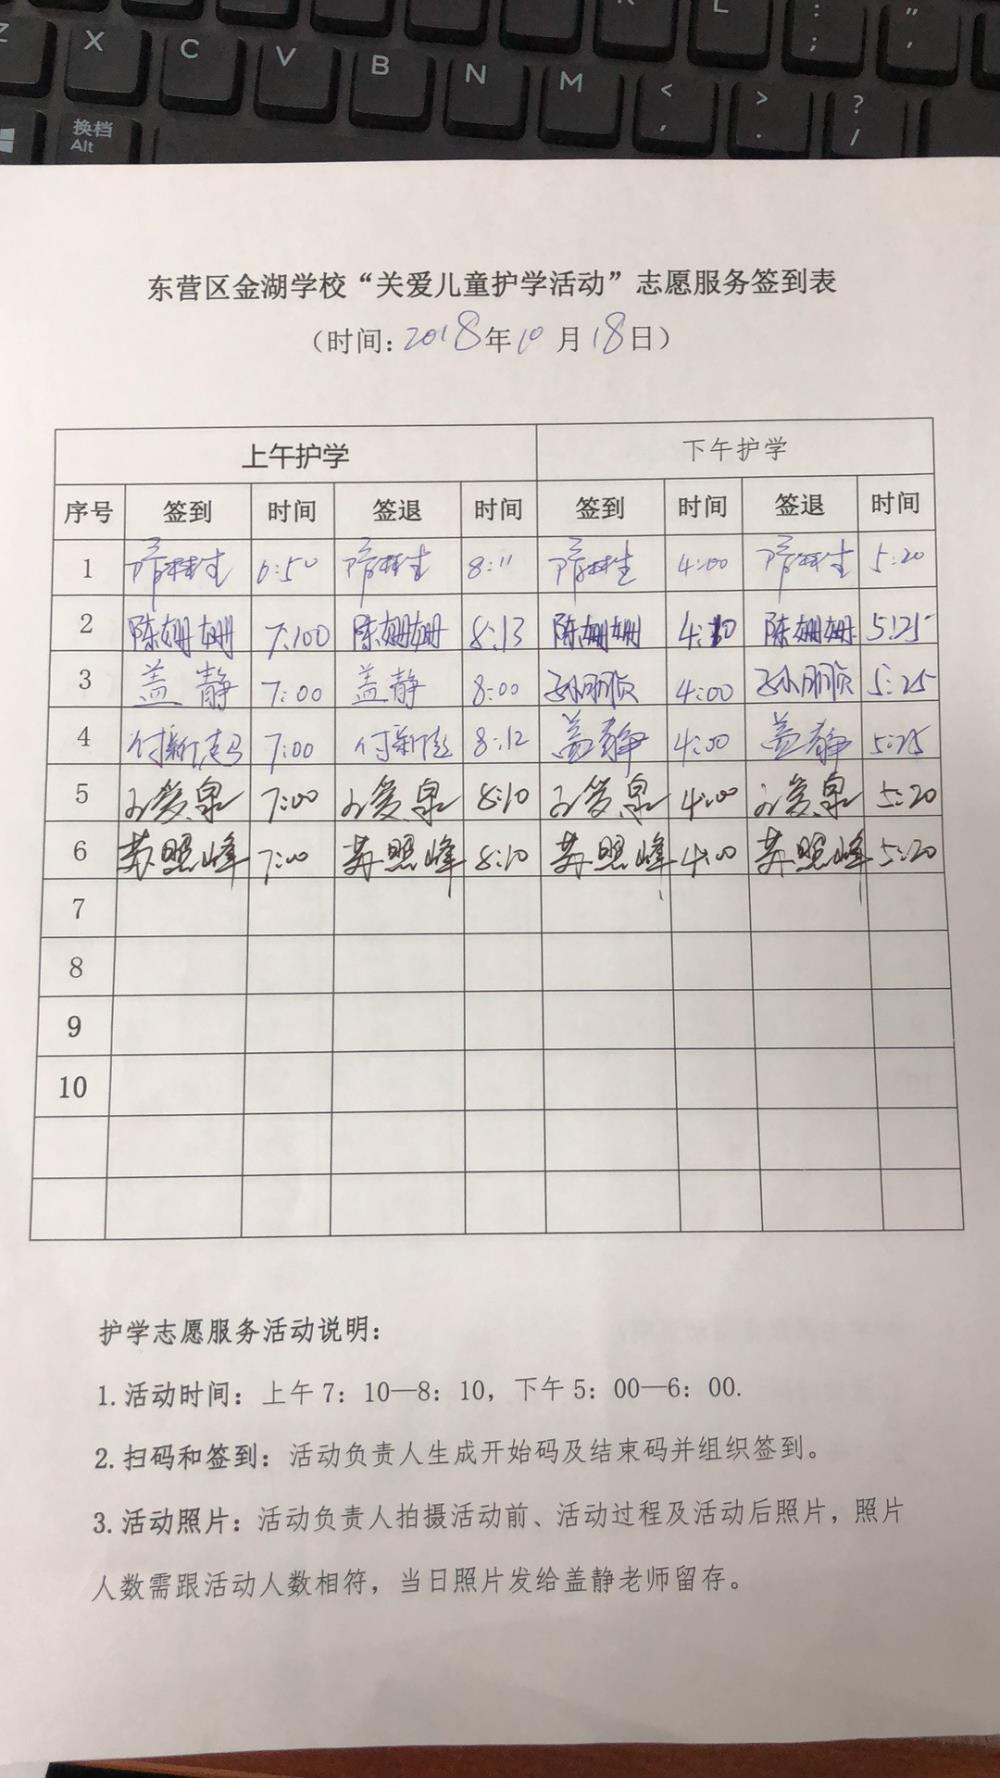 Z X C V B N M K L : ; " '
换档 Alt < , > . ? /
东营区金湖学校“关爱儿童护学活动”志愿服务签到表
（时间：2018年10月18日）
上午护学 下午护学
序号 签到 时间 签退 时间 签到 时间 签退 时间
1 6:50 8:11 4:00 5:20
2 陈姗姗 7:00 陈姗姗 8:13 陈姗姗 陈姗姗 5:25
3 盖静 7:00 盖静 8:00 4:00 5:25
4 7:00 8:12 盖静 4:00 盖静 5:25
5 7:00 8:10 4:00 5:20
6 苏照峰 7:00 苏照峰 8:10 苏照峰 4:00 苏照峰 5:20
7
8
9
10
护学志愿服务活动说明：
1.活动时间：上午7：10—8：10，下午5：00—6：00.
2.扫码和签到：活动负责人生成开始码及结束码并组织签到。
3.活动照片：活动负责人拍摄活动前、活动过程及活动后照片，照片
人数需跟活动人数相符，当日照片发给盖静老师留存。